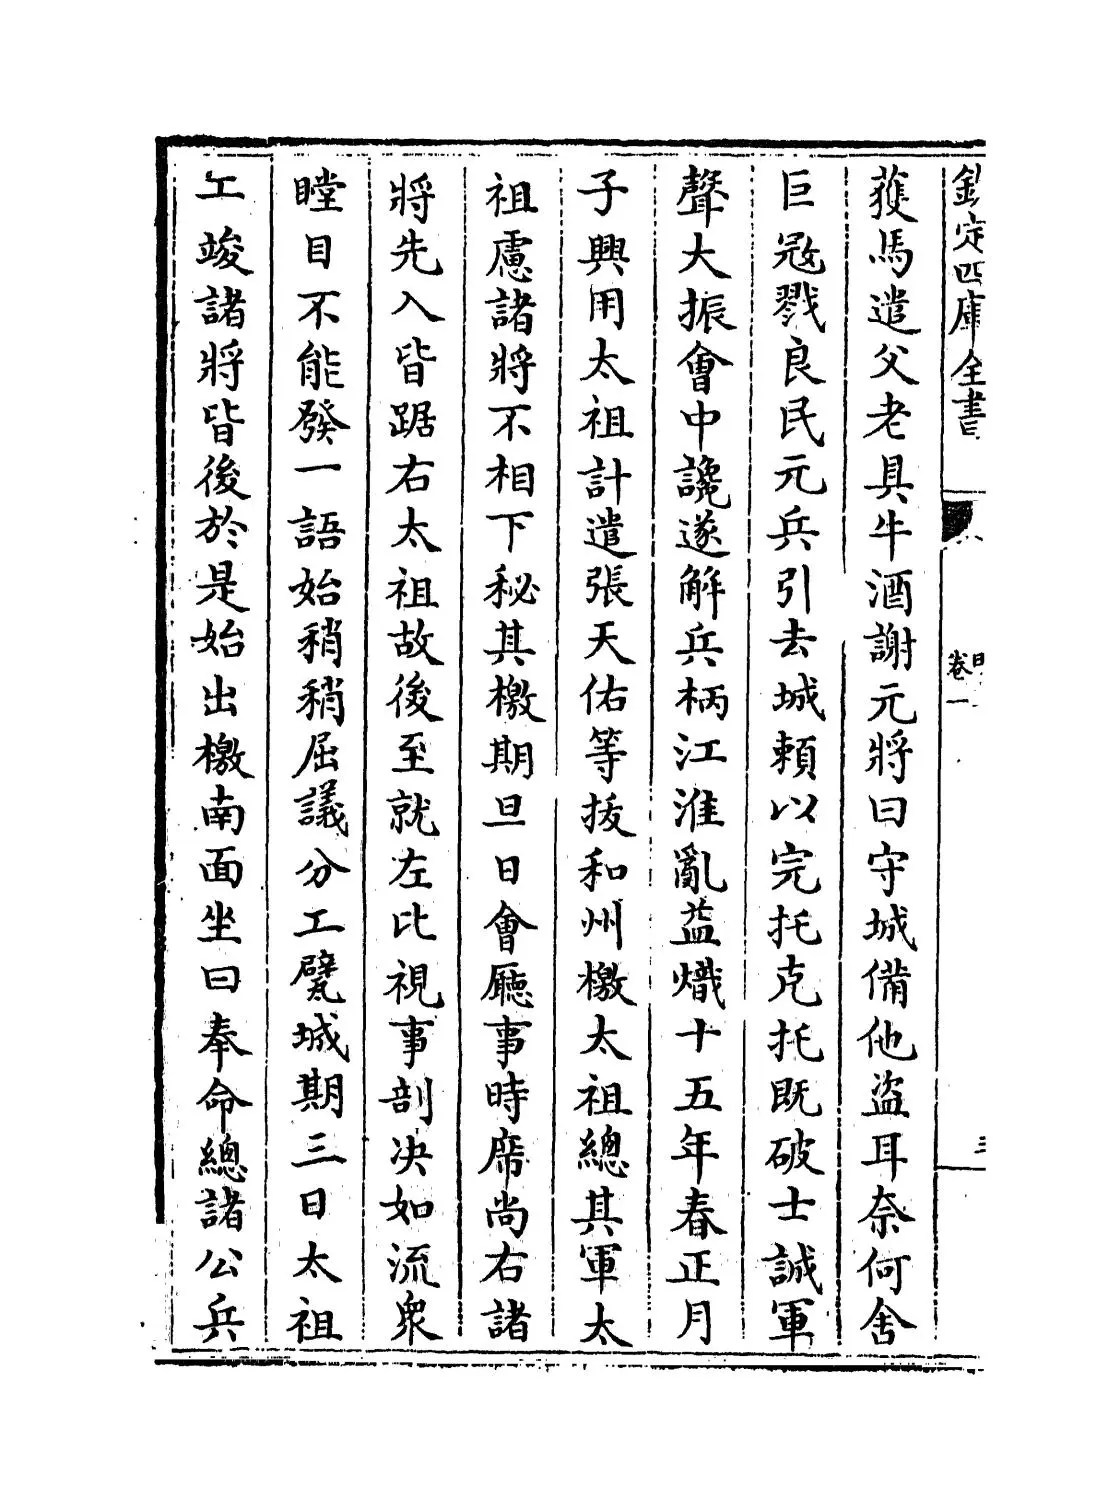 欽定四庫全書
卷一
三
獲馬遣父老具牛酒謝元將曰守城備他盜耳奈何舍
巨寇戮良民元兵引去城賴以完托克托既破士誠軍
聲大振會中讒遂解兵柄江淮亂益熾十五年春正月
子興用太祖計遣張天佑等拔和州檄太祖總其軍太
祖慮諸將不相下秘其檄期旦日會廳事時席尚右諸
將先入皆踞右太祖故後至就左比視事剖決如流衆
瞠目不能發一語始稍稍屈議分工甓城期三日太祖
工竣諸將皆後於是始出檄南面坐曰奉命總諸公兵